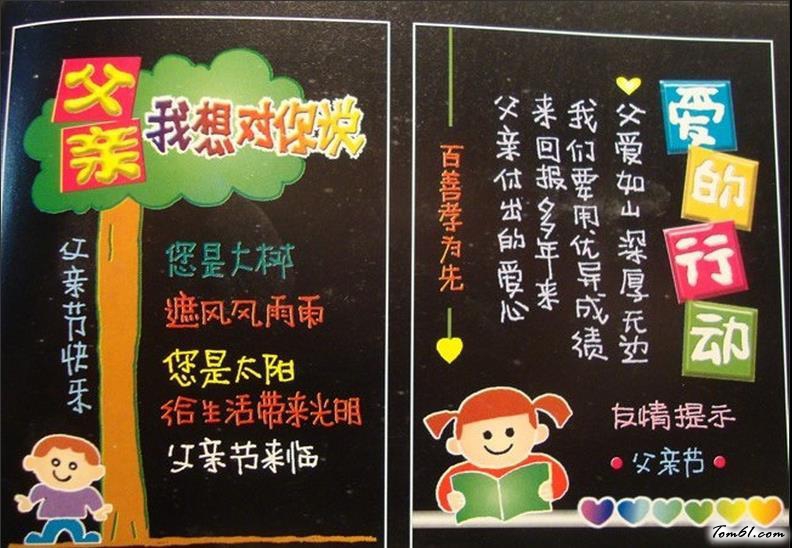 父亲
我想对你说
父亲节快乐
您是大树
遮风风雨雨
您是太阳
给生活带来光明
父亲节来临
爱的行动
父爱如山深厚无边
我们要用优异成绩
来回报多年来
父亲付出的爱心
百善孝为先
友情提示
父亲节
Tom61.com